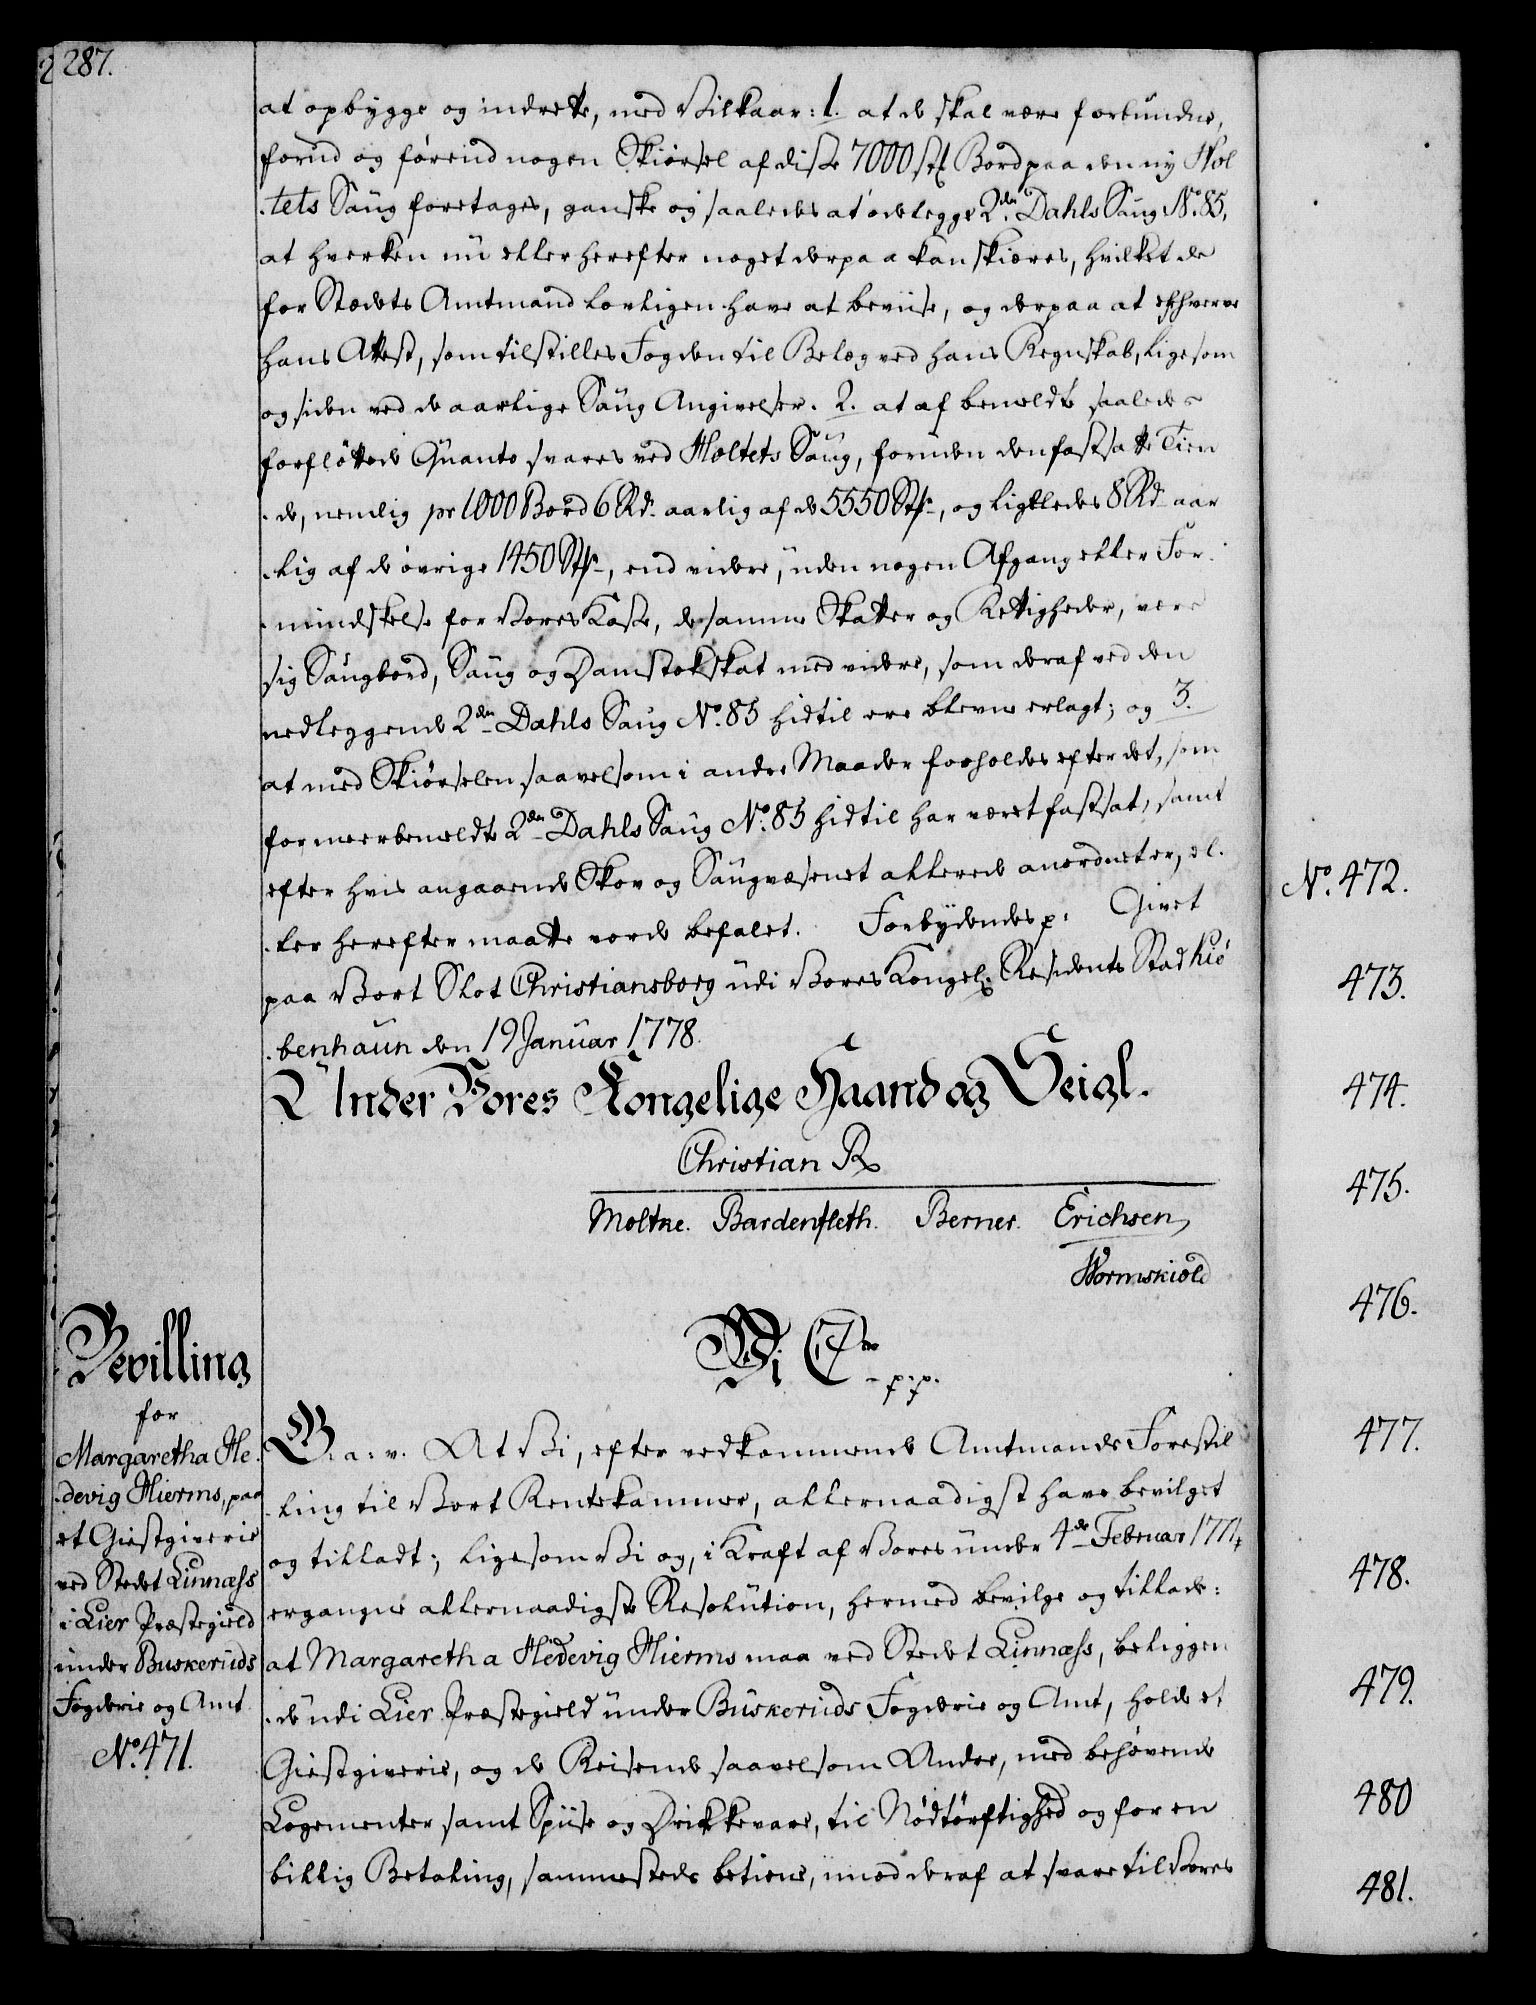 287.
at opbygge og indrette, med Vilkaar: 1. at de skal være forbundne,
forud og førend nogen Skiørsel af diße 7000 st Bord paa den ny Hol
tets Saug foretages, ganske og saaledes at ødelegge 2den Dahls Saug No. 85,
at hverken nu eller herefter noget derpaa kan skiæres, hvilket de
for Stædets Amtmand lovligen have at beviise, og derpaa at erhverve
hans Attest, som tilstilles Fogden til Belæg ved hans Regnskab, ligesom
og siden ved de aarlige Saug Angivelser. 2. at af bemeldte saaledes
forflöttede Qvanto svares ved Holtets Saug, foruden den fastsatte Tien
de, nemlig pr 1000 Bord 6 Rd. aarlig af de 5550 Stkr, og ligeledes 8 Rd. aar
lig af de övrige 1450 Stkr, end videre, uden nogen Afgang eller For
mindskelse for Vores Kaße, de samme Skatter og Rettigheder, være
sig Saugbord, Saug og Damstokskat med videre, som deraf ved den
nedleggende 2den Dahls Saug No. 85 hidtil ere blevne erlagt; og 3.
at med Skiørselen saavelsom i andre Maader forholdes efter det, som
for meerbemeldte 2den Dahls Saug No. 85 hidtil har været fastsat, samt
efter hvis angaaende Skov og Saugvæsenet allerede anordnet er, el
ler herefter maatte vorde befalet. Forbydendes p. Givet
paa Vort Slot Christiansborg udi Vores Kongel. Residents Stad Kiö
benhaun den 19 Januar 1778.
Under Vores Kongelige Haand og Seigl.
Christian R
Moltke. Bardenfleth. Berner. Erichsen
Wormskiold
Vi C 7de p. p.
Bevilling
for
Margaretha He
devig Hierms, paa
et Giestgiverie
ved Stedet Linnæss
i Lier Præstegield
under Buskeruds
Fogderie og Amt
No. 471.
G. a. v. At Vi, efter vedkommende Amtmands Forestil
ling til Vort Rentekammer, allernaadigst have bevilget
og tilladt; ligesom Vi og, i Kraft af Vores under 4de Februar 1774
ergangne allernaadigste Resolution, hermed bevilge og tillade:
at Margaretha Hedevig Hierms maa ved Stedet Linnæss, beliggen
de udi Lier Præstegield under Buskeruds Fogderie og Amt, holde et
Giestgiverie, og de Reisende saavelsom Andre, med behøvende
Logementer samt Spiise og Drikkevare, til Nödtörftighed og for en
billig Betaling, sammesteds betiene, imod deraf at svare til Vores
No. 472.
473.
474.
475.
476.
477.
478.
479.
480
481.